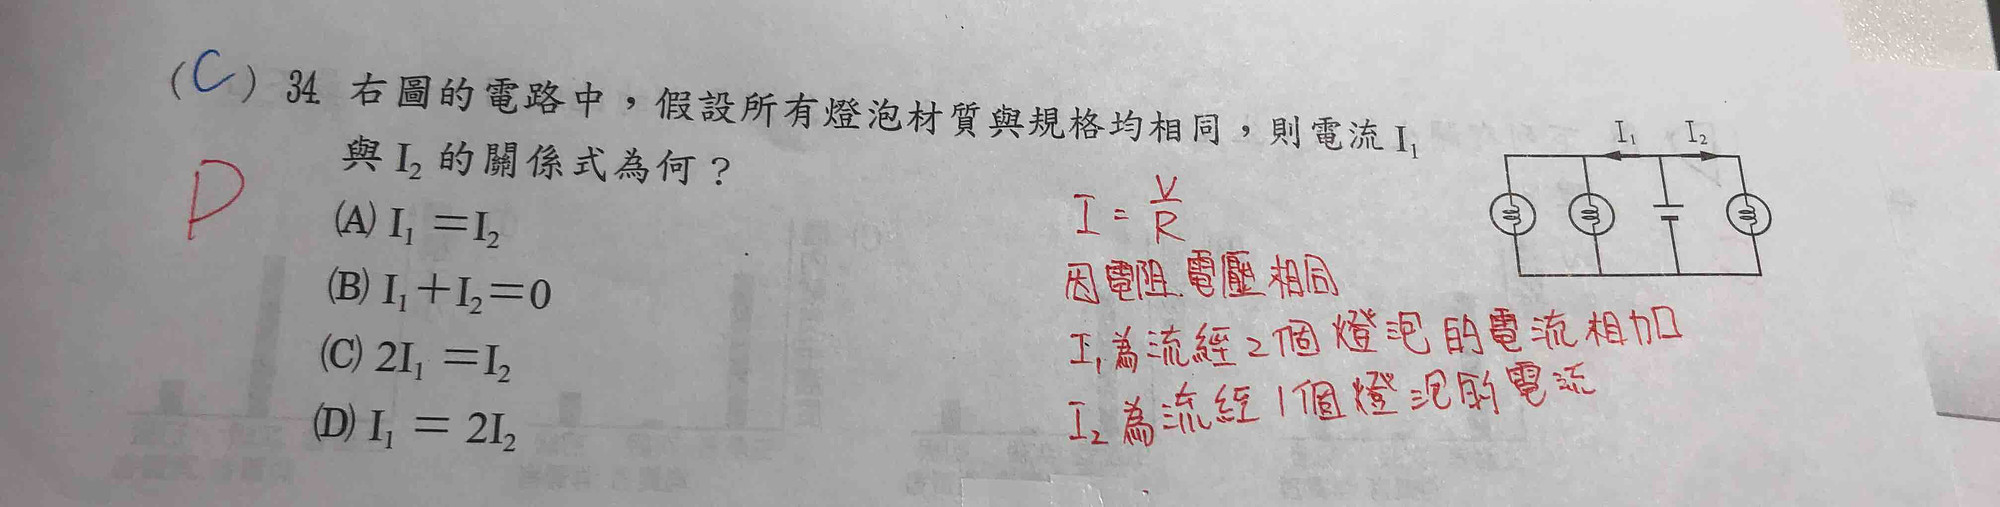 (C) 34. 右圖的電路中，假設所有燈泡材質與規格均相同，則電流 I₁
與 I₂ 的關係式為何？
D
(A) I₁ ＝I₂
(B) I₁＋I₂＝0
(C) 2I₁ ＝I₂
(D) I₁ ＝ 2I₂
I₁ I₂
I = V/R
因電阻、電壓相同
I₁為流經2個燈泡的電流相加
I₂為流經1個燈泡的電流